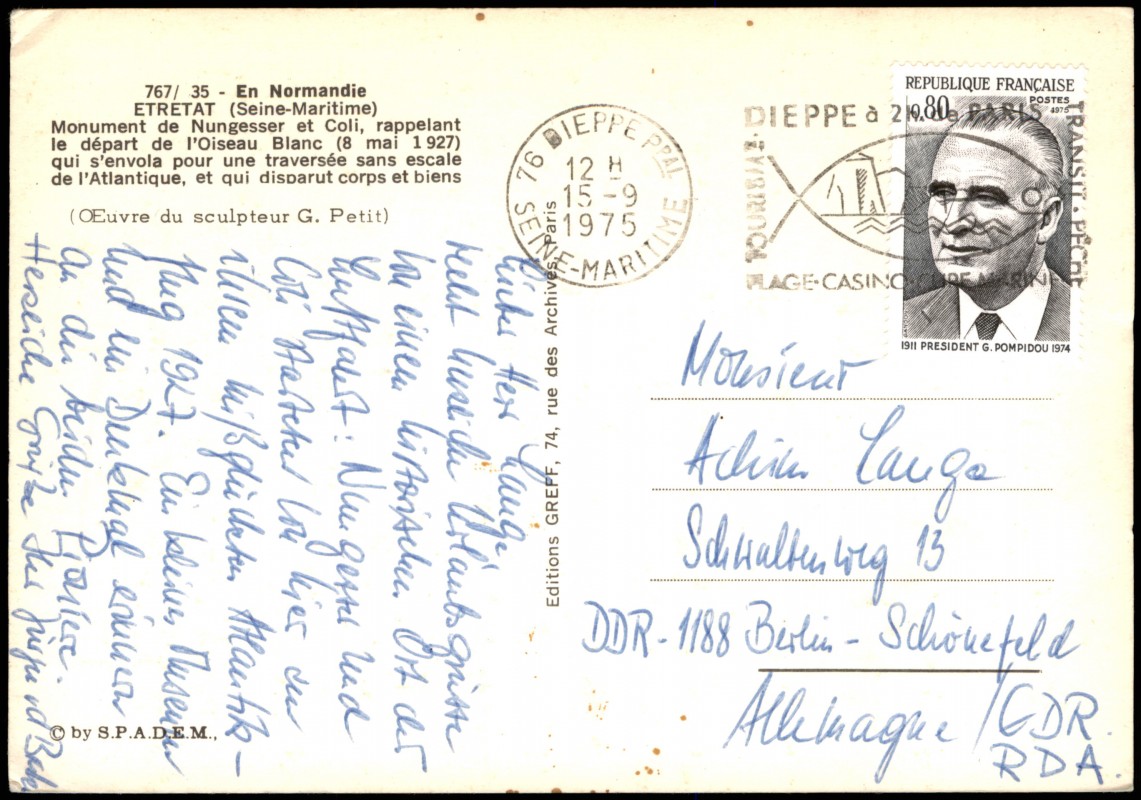 767/ 35 - En Normandie
ETRETAT (Seine-Maritime)
Monument de Nungesser et Coli, rappelant
le départ de l'Oiseau Blanc (8 mai 1927)
qui s'envola pour une traversée sans escale
de l'Atlantique, et qui disparut corps et biens
(Œuvre du sculpteur G. Petit)
Lieber Herr Lange
recht herzliche Urlaubsgrüsse
von einem historischen Ort der
Luftfahrt: Nungesser und
Coli starteten von hier zu
ihrem mißglückten Atlantik-
flug 1927. Ein kleines Museum
und ein Denkmal erinnern
an die beiden Flieger.
Herzliche Grüße Ihr
© by S.P.A.D.E.M.,
Editions GREFF, 74, rue des Archives, Paris
76 DIEPPE PPAL
12 H
15-9
1975
SEINE-MARITIME
DIEPPE à 2H. de PARIS
TRANSIT - PÊCHE
PLAGE-CASINO-CURE MARINE
REPUBLIQUE FRANÇAISE
0.80
POSTES
1975
1911 PRESIDENT G. POMPIDOU 1974
Monsieur
Achim Lange
Schwalbenweg 13
DDR-1188 Berlin-Schönefeld
Allemagne / GDR.
RDA.